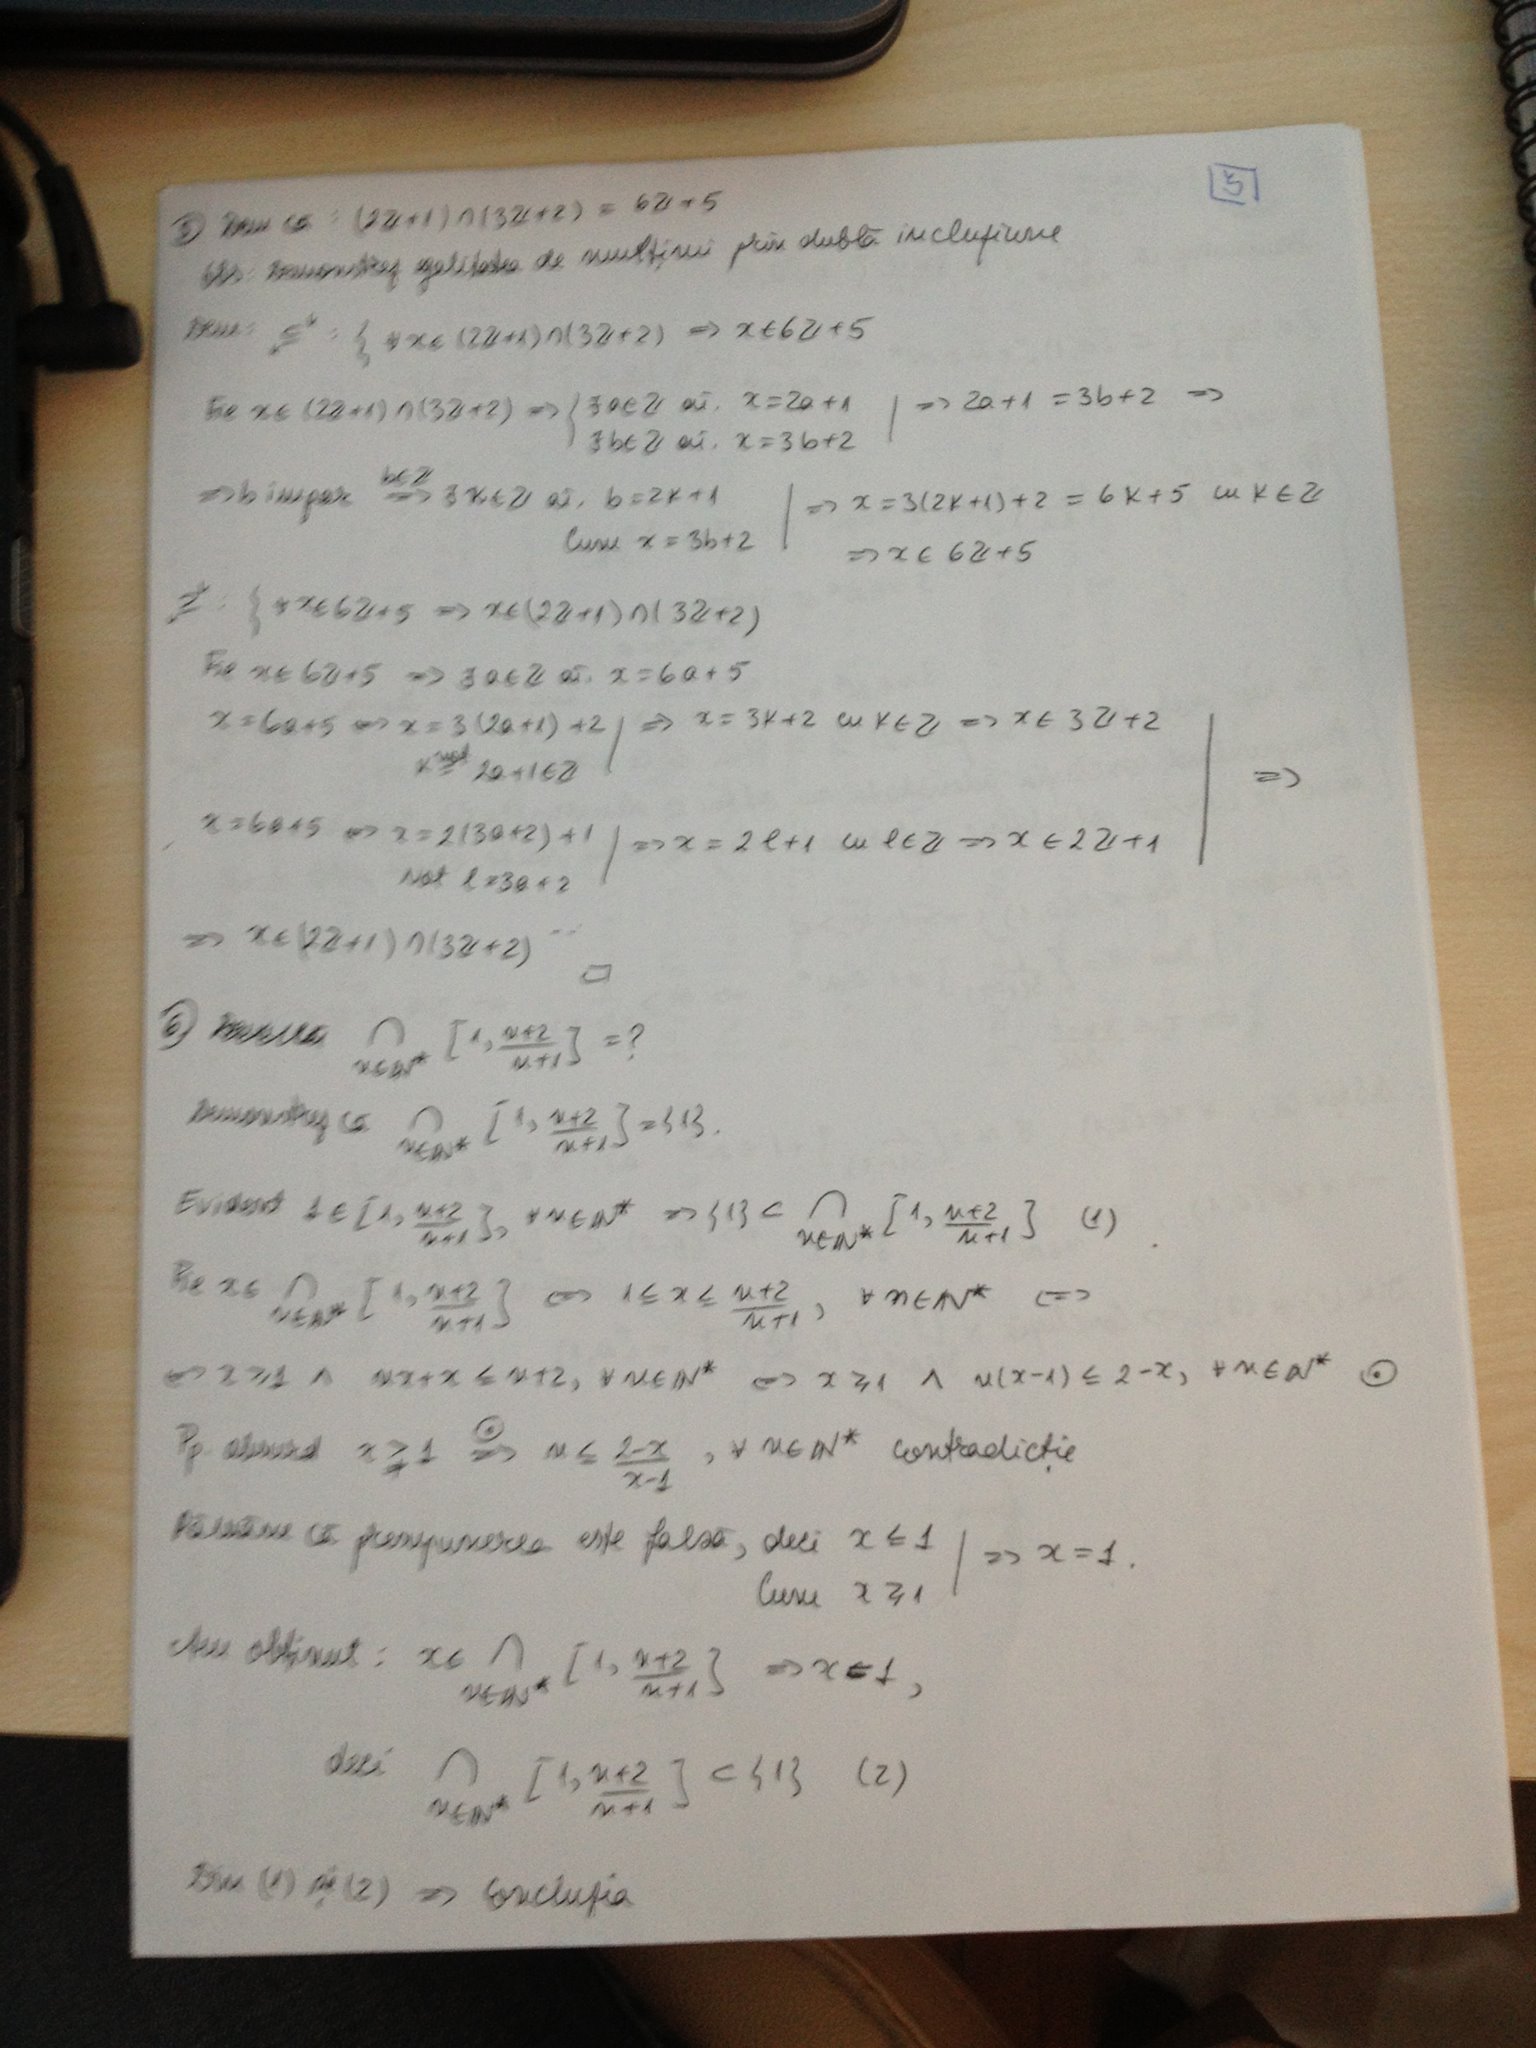 5
5) Dem că : (2ℤ+1)∩(3ℤ+2) = 6ℤ+5
Obs: Demonstrez egalitatea de mulțimi prin dublă incluziune
Dem: "⊆" : { ∀x∈(2ℤ+1)∩(3ℤ+2) => x∈6ℤ+5
Fie x∈(2ℤ+1)∩(3ℤ+2) => { ∃a∈ℤ aî. x=2a+1 | => 2a+1 = 3b+2 =>
∃b∈ℤ aî. x=3b+2
=> b impar =>(b∈ℤ) ∃k∈ℤ aî. b=2k+1 | => x=3(2k+1)+2 = 6k+5 cu k∈ℤ
Cum x=3b+2 | => x∈6ℤ+5
"⊇" : { ∀x∈6ℤ+5 => x∈(2ℤ+1)∩(3ℤ+2)
Fie x∈6ℤ+5 => ∃a∈ℤ aî. x=6a+5
x=6a+5 <=> x=3(2a+1)+2 | => x=3k+2 cu k∈ℤ => x∈3ℤ+2
k not= 2a+1∈ℤ | =>
x=6a+5 <=> x=2(3a+2)+1 | => x=2l+1 cu l∈ℤ => x∈2ℤ+1
Not l=3a+2
=> x∈(2ℤ+1)∩(3ℤ+2) □
6) ∩ n∈ℕ* [1, (n+2)/(n+1)] =?
Demonstrez că ∩ n∈ℕ* [1, (n+2)/(n+1)] = {1}.
Evident 1∈[1, (n+2)/(n+1)], ∀n∈ℕ* => {1} ⊂ ∩ n∈ℕ* [1, (n+2)/(n+1)] (1)
Fie x∈ ∩ n∈ℕ* [1, (n+2)/(n+1)] <=> 1≤x≤(n+2)/(n+1), ∀n∈ℕ* <=>
<=> x≥1 ∧ nx+x≤n+2, ∀n∈ℕ* <=> x≥1 ∧ n(x-1)≤2-x, ∀n∈ℕ* ⊙
Pp. absurd x≩1 =>⊙ n≤(2-x)/(x-1), ∀n∈ℕ* contradicție
Rămâne că presupunerea este falsă, deci x≤1 | => x=1.
Cum x≥1
Am obținut: x∈ ∩ n∈ℕ* [1, (n+2)/(n+1)] => x=1,
deci ∩ n∈ℕ* [1, (n+2)/(n+1)] ⊂ {1} (2)
Din (1) și (2) => concluzia